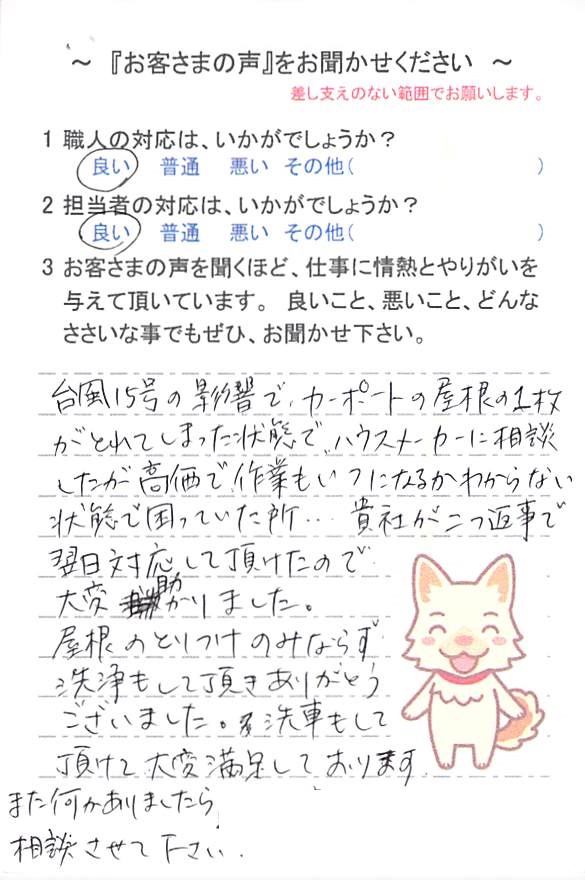 ～ 『お客さまの声』をお聞かせください ～
差し支えのない範囲でお願いします。
1 職人の対応は、いかがでしょうか？
良い 普通 悪い その他( )
2 担当者の対応は、いかがでしょうか？
良い 普通 悪い その他( )
3 お客さまの声を聞くほど、仕事に情熱とやりがいを
与えて頂いています。 良いこと、悪いこと、どんな
ささいな事でもぜひ、お聞かせ下さい。
台風15号の影響で、カーポートの屋根の1枚
がとれてしまった状態で、ハウスメーカーに相談
したが高価で、作業もいつになるかわからない
状態で困っていた所… 貴社が二つ返事で
翌日対応して頂けたので
大変 助かりました。
屋根のとりつけのみならず
洗浄もして頂きありがとう
ございました。洗車もして
頂けて大変満足しております。
また何かありましたら、
相談させて下さい。